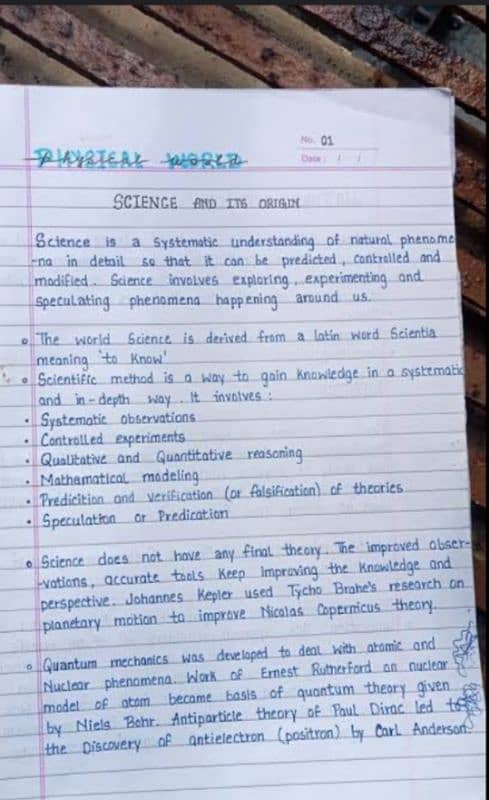 No. 01
PHYSICAL WORLD
Date: / /
SCIENCE AND ITS ORIGIN
Science is a systematic understanding of natural phenome
-na in detail so that it can be predicted, controlled and
modified. Science involves exploring, experimenting and
speculating phenomena happening around us.
The world Science is derived from a latin word Scientia
meaning 'to Know'
Scientific method is a way to gain knowledge in a systematic
and in-depth way. It involves:
• Systematic observations
• Controlled experiments
• Qualitative and Quantitative reasoning
• Mathamatical modeling
• Predicition and verification (or falsification) of theories
• Speculation or Predication
Science does not have any final theory. The improved obser-
-vations, accurate tools keep improving the knowledge and
perspective. Johannes Kepler used Tycho Brahe's research on
planetary motion to improve Nicolas Copernicus theory.
Quantum mechanics was developed to deal with atomic and
Nuclear phenomena. Work of Ernest Rutherford on nuclear
model of atom became basis of quantum theory given
by Niels Bohr. Antiparticle theory of Paul Dirac led to
the Discovery of antielectron (positron) by Carl Anderson